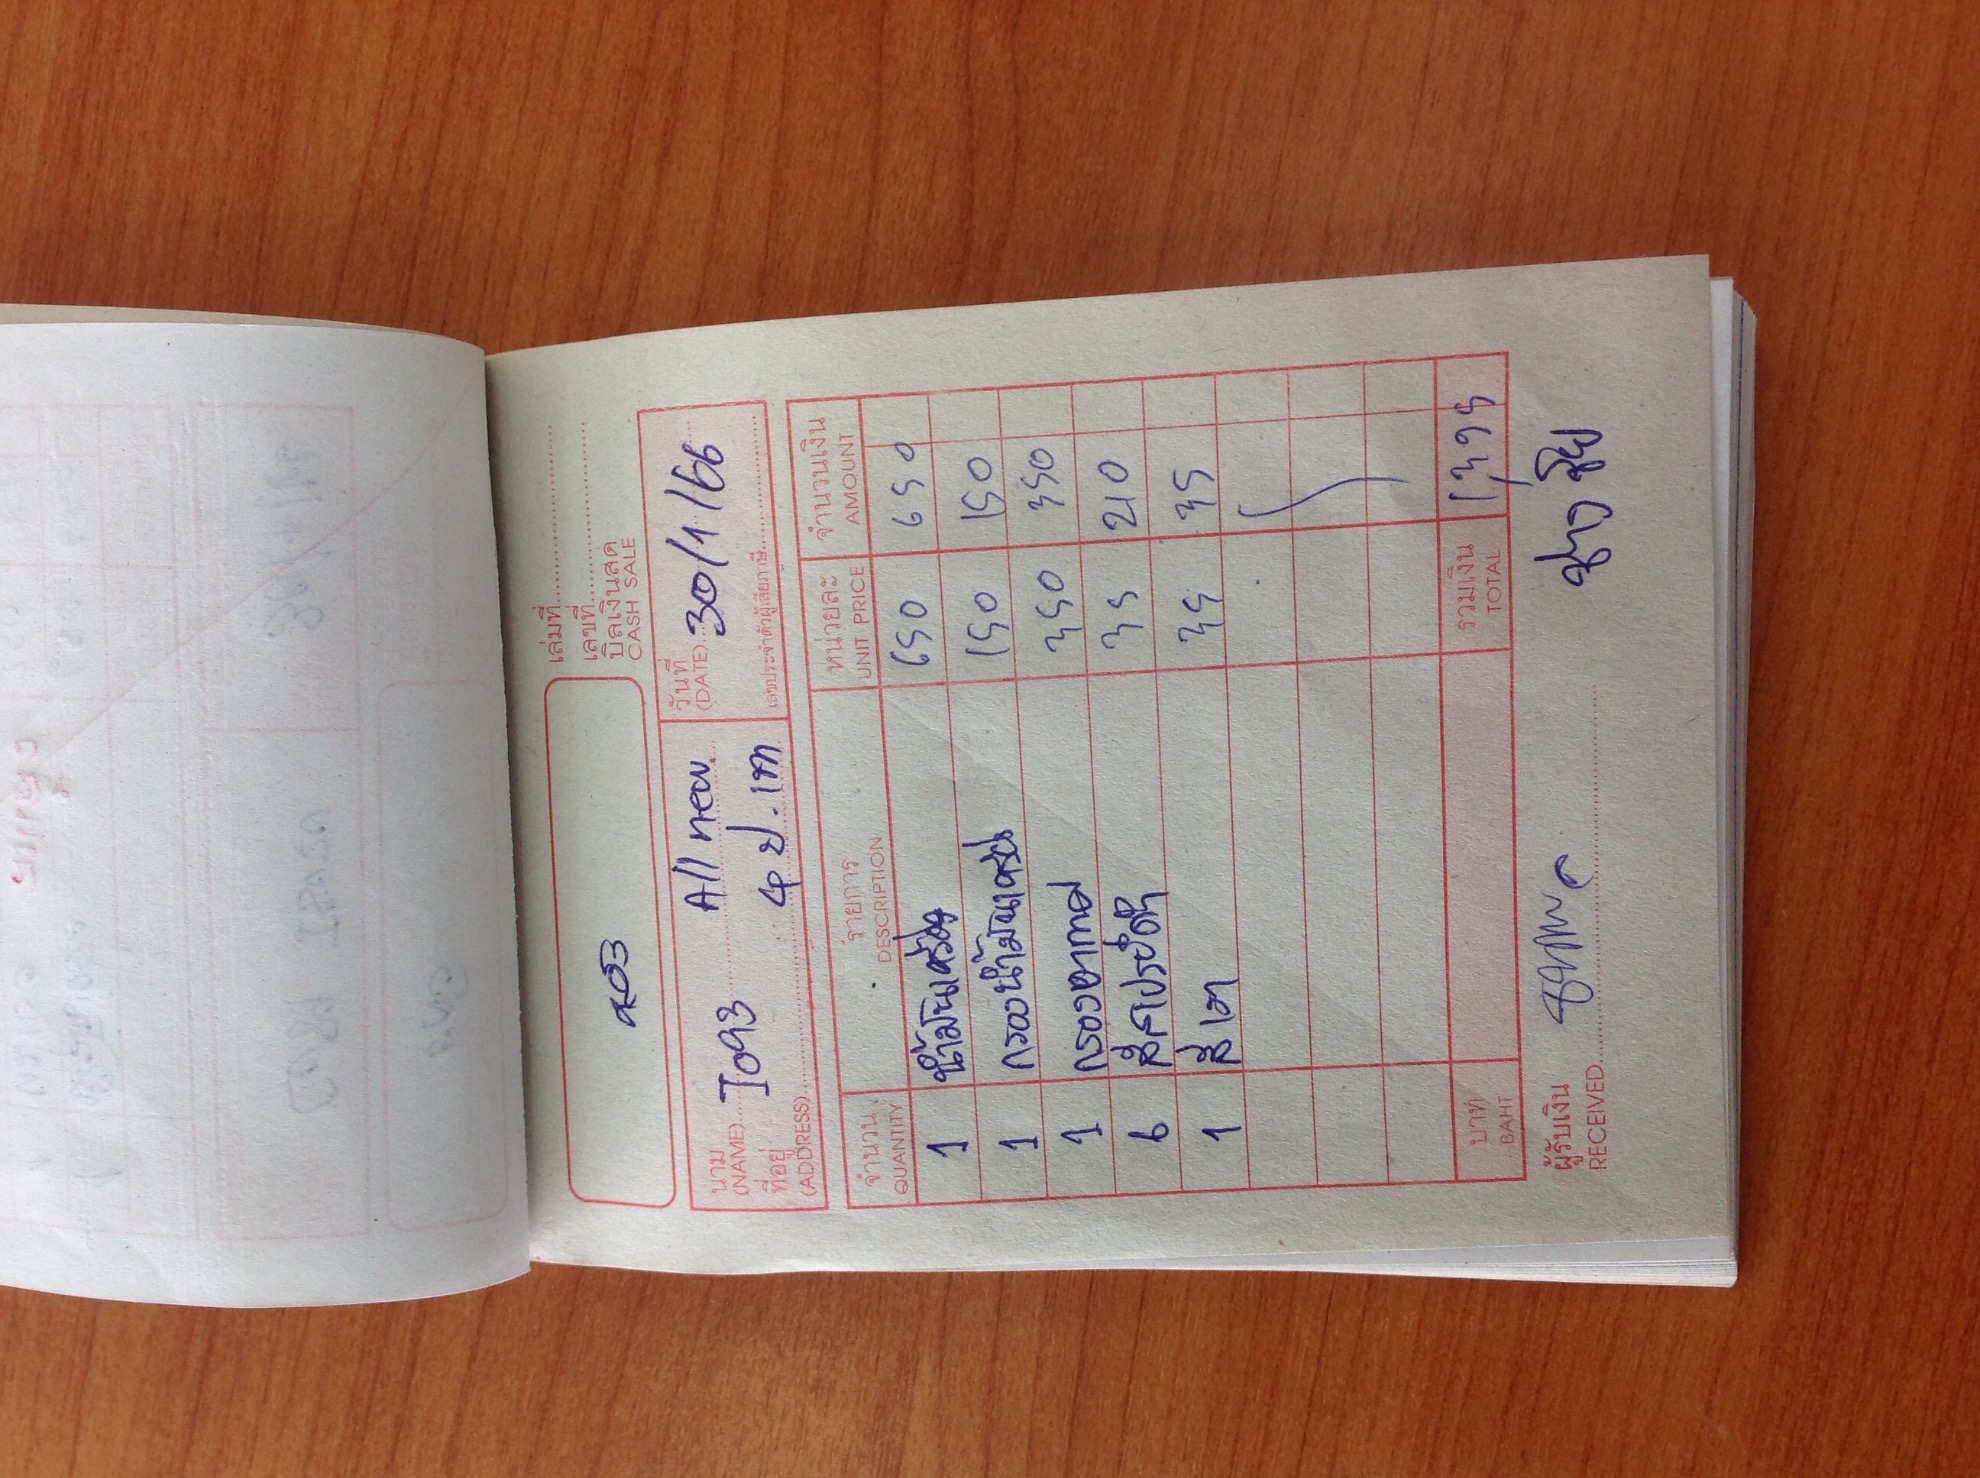 เล่มที่
เลขที่
บิลเงินสด
CASH SALE
ช03
นาม
(NAME) I093 All new
วันที่
(DATE) 30/1/66
ที่อยู่
(ADDRESS) 4 ป.เท
เลขประจำตัวผู้เสียภาษี
จำนวน รายการ หน่วยละ จำนวนเงิน
QUANTITY DESCRIPTION UNIT PRICE AMOUNT
1 น้ำมันเครื่อง 650 650
1 กรองน้ำมันเครื่อง 150 150
1 กรองอากาศ 350 350
6 สีสเปรย์ดำ 35 210
1 สีเทา 35 35
บาท รวมเงิน 1,395
BAHT TOTAL
ผู้รับเงิน
RECEIVED